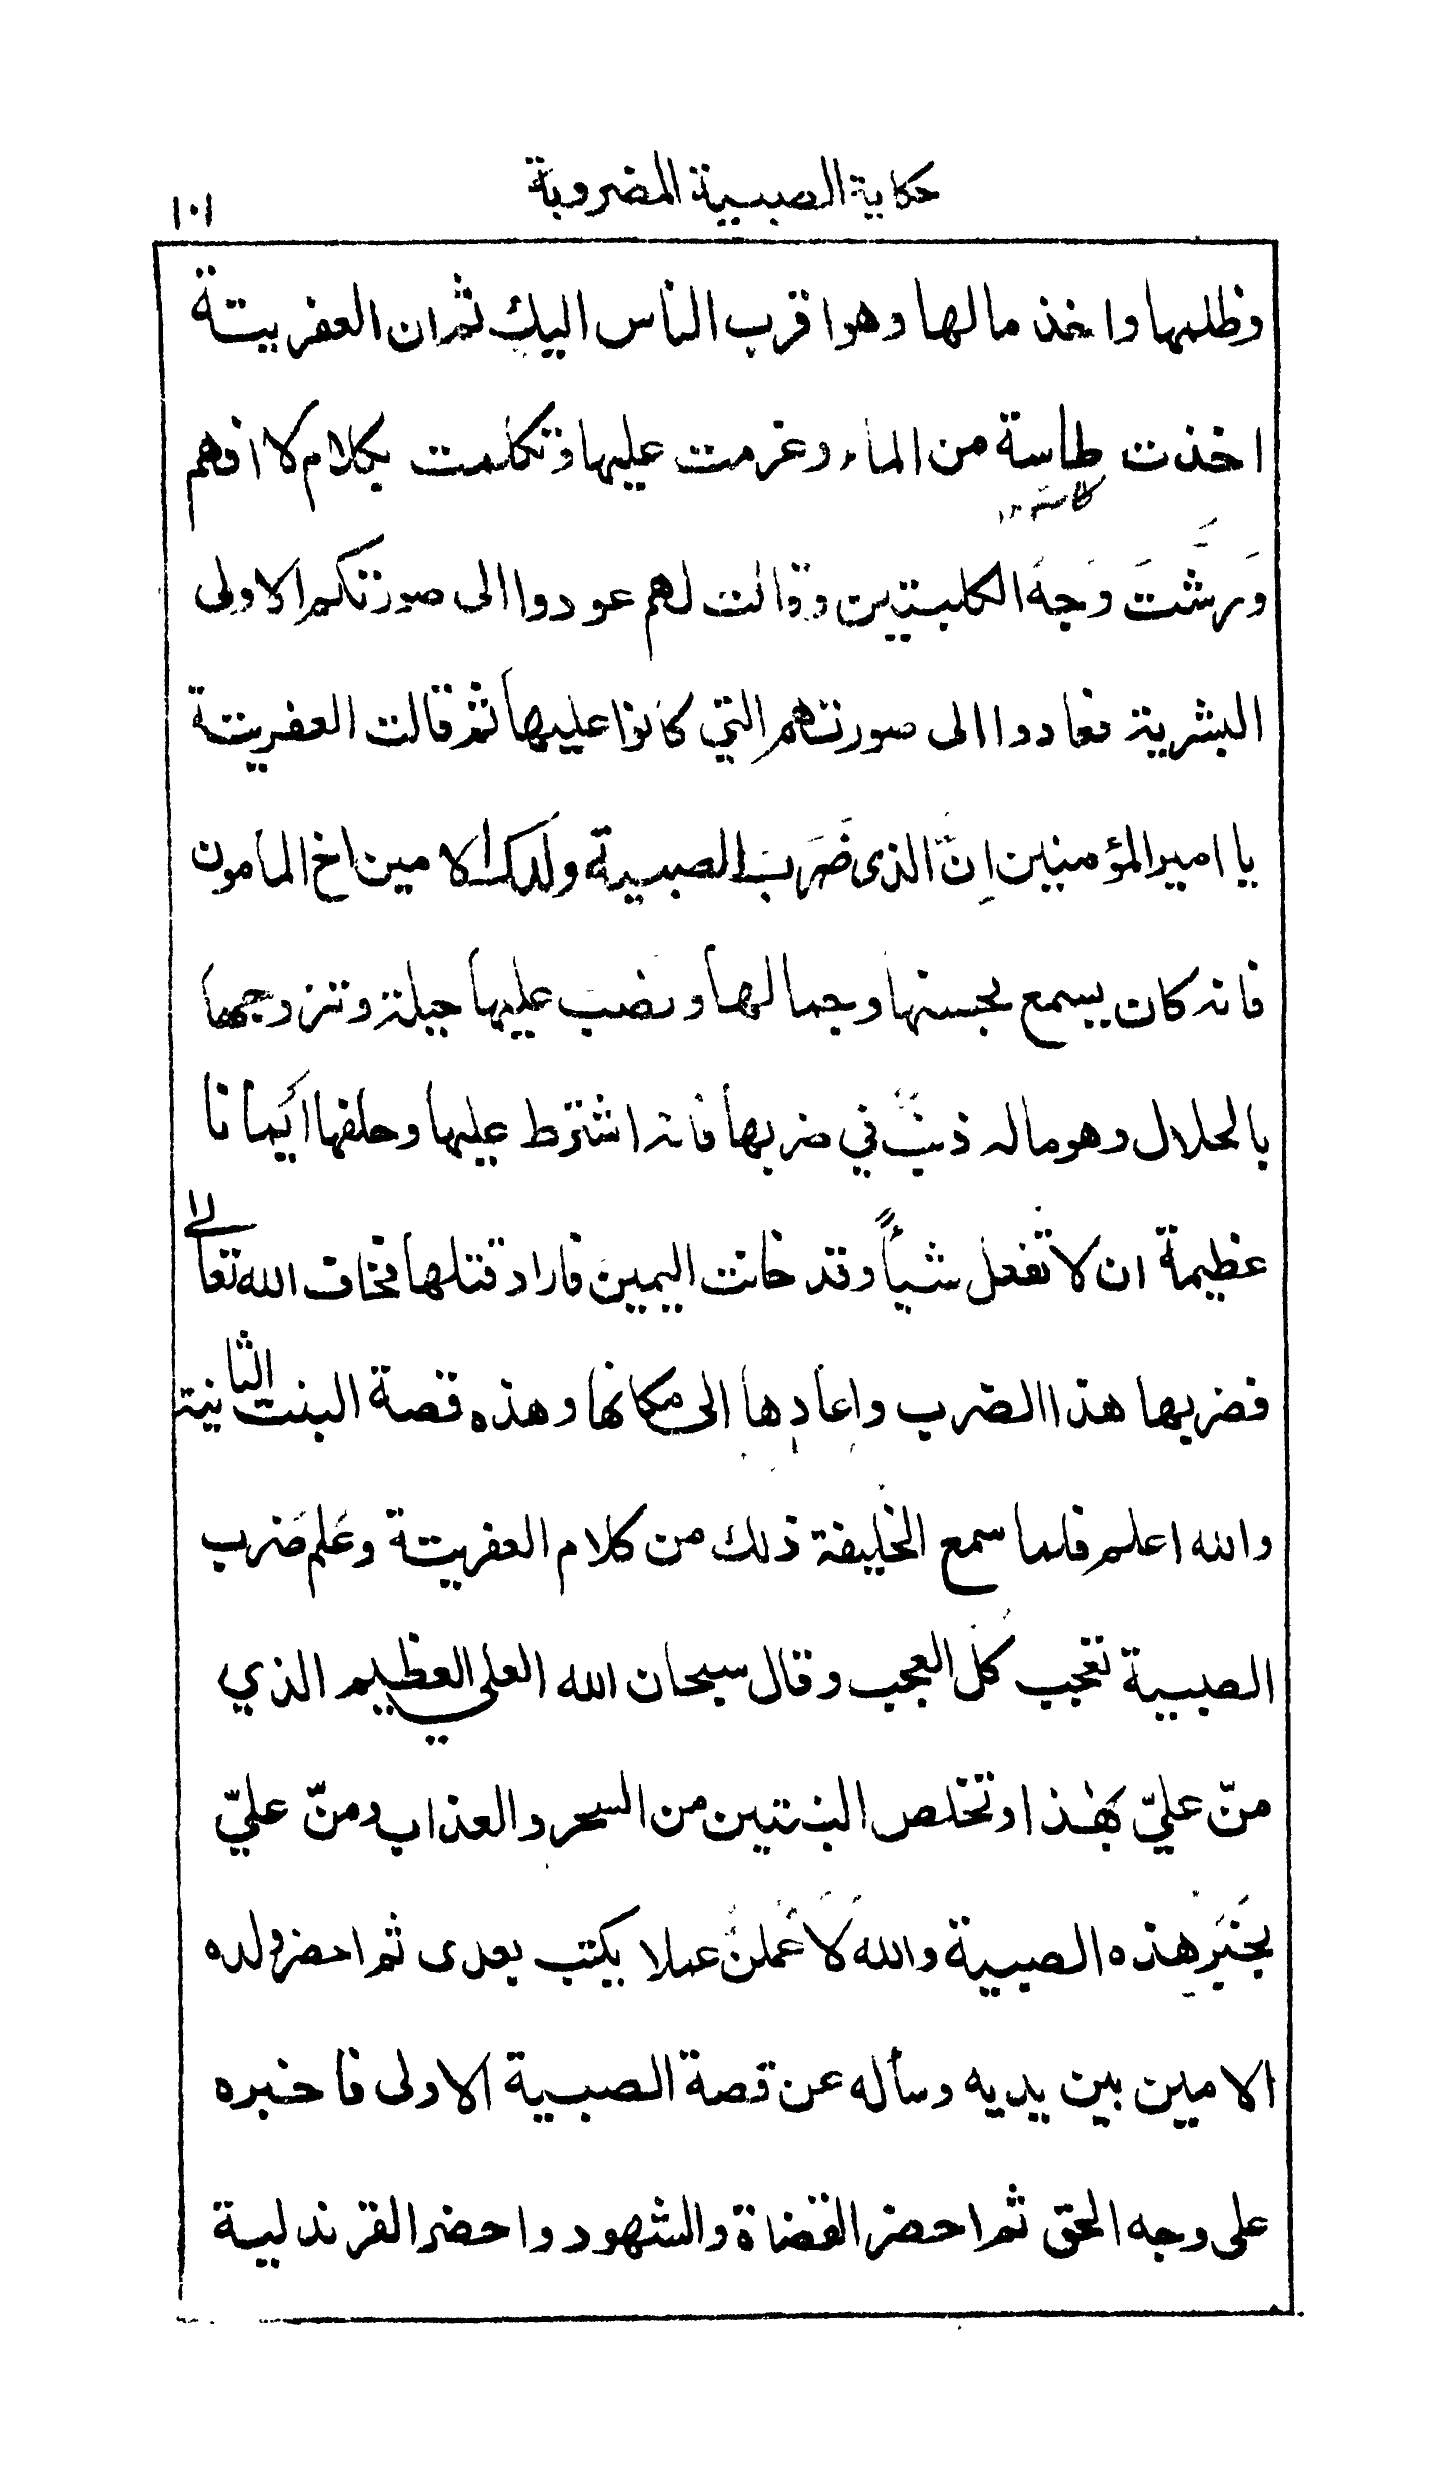 حكاية الصبية المضروبة
١٠١
وظلمها واخذ مالها وهو اقرب الناس اليك ثم ان العفريتة
اخذت طاسة من الماء وعزمت عليها وتكلمت بكلام لا افهم
كاسة
وَرشَّتَ وَجهَ الكلبتين وقالت لهم عودوا الى صورتكم الاولى
البشرية فعادوا الى صورتهم التي كانوا عليها ثم قالت العفريتة
يا امير المؤمنين اِنَّ الذى ضَرَبَ الصبية ولَدك الامين اخ المأمون
فانه كان يسمع بحسنها وجمالها ونصب عليها حيلة وتزوجها
بالحلال وهو ماله ذنبٌ في ضربها فانه اشترط عليها وحلفها اَيمانا
عظيمة ان لا تفعل شيأً وقد خانت اليمين فاراد قتلها فخاف الله تعالى
فضربها هذا الضرب واعادها الى مكانها وهذه قصة البنت الثانية
والله اعلم فلما سمع الخليفة ذلك من كلام العفريتة وعَلم ضَرب
الصبية تعجب كلَ العجب وقال سبحان الله العلي العظيم الذي
منّ عليّ بهذا وتخلص البنتين من السحر والعذاب ومنّ عليّ
بخَبَرِ هذه الصبية والله لَاَعْملنَّ عملا يكتب بعدى ثم احضر ولده
الامين بين يديه وسأله عن قصة الصبية الاولى فاخبره
على وجه الحق ثم احضر القضاة والشهود واحضر القرندلية